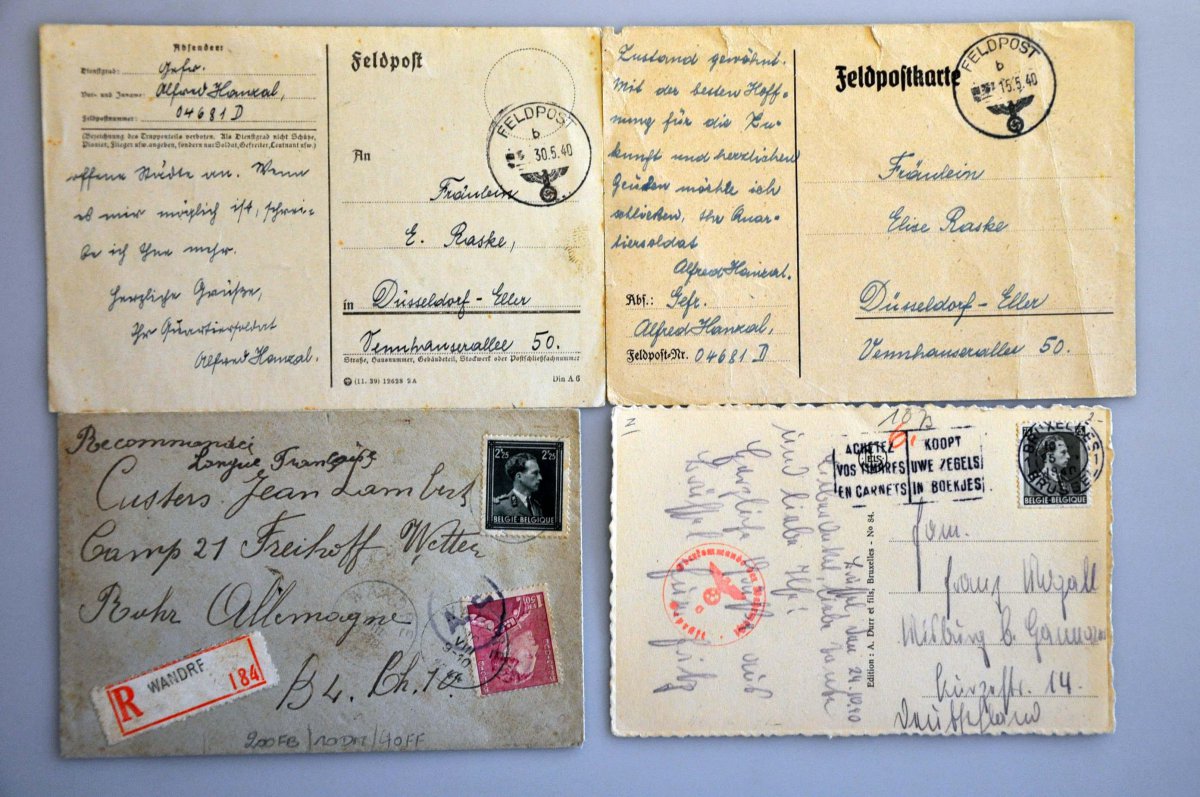 Absender:
Dienstgrad: Gefr.
Vor- und Zuname: Alfred Hanzal,
Feldpostnummer: 04681 D
(Bezeichnung des Truppenteils verboten. Als Dienstgrad nicht Schütze,
Pionier, Flieger usw. angeben, sondern nur Soldat, Gefreiter, Leutnant usw.)
offene Städte an. Wenn
es mir möglich ist, schrei-
be ich Ihne mehr.
Herzliche Grüße,
Ihr Quartiersoldat
Alfred Hanzal.
Feldpost
FELDPOST
b
30.5.40
An
Fräulein
E. Raske,
in Düsseldorf-Eller
Vennhauserallee 50.
Straße, Hausnummer, Gebäudeteil, Stockwerk oder Postschließfachnummer
(11. 39) 12628 2A
Din A 6
Zustand gewöhnt.
Mit der besten Hoff-
nung für die Zu-
kunft und herzlichen
Grüßen möchte ich
schließen, Ihr Quar-
tiersoldat
Alfred Hanzal.
Abs.: Gefr.
Alfred Hanzal,
Feldpost-Nr. 04681 D
Feldpostkarte
FELDPOST
b
15.5.40
Fräulein
Elise Raske
Düsseldorf-Eller
Vennhauserallee 50.
Recommandei
Langue Française
Custers Jean Lambert
Camp 21 Freihoff Wetter
Ruhr Allemagne
B4. Ch.10
2F25 2F25
BELGIE-BELGIQUE
R WANDRE 184
200FB/10DM/40FF
ACHETEZ
VOS TIMBRES
EN CARNETS
KOOPT
UWE ZEGELS
IN BOEKJES
BRUXELLES
BRUSSEL
BELGIE-BELGIQUE
24.10.40
und liebe
Herzliche aus
Fritz
Oberkommando der Wehrmacht
Edition: A. Durr et fils, Bruxelles - No 84.
Fam.
Franz
Misburg b. Hannover
Kurzestr. 14.
Deutschland